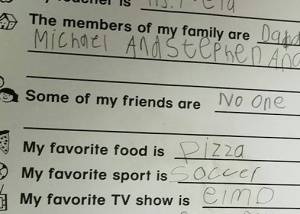 My teacher is Ms.
The members of my family are Dad
Michael And Stephen And
Some of my friends are No one
My favorite food is pizza
My favorite sport is Soccer
My favorite TV show is elmo